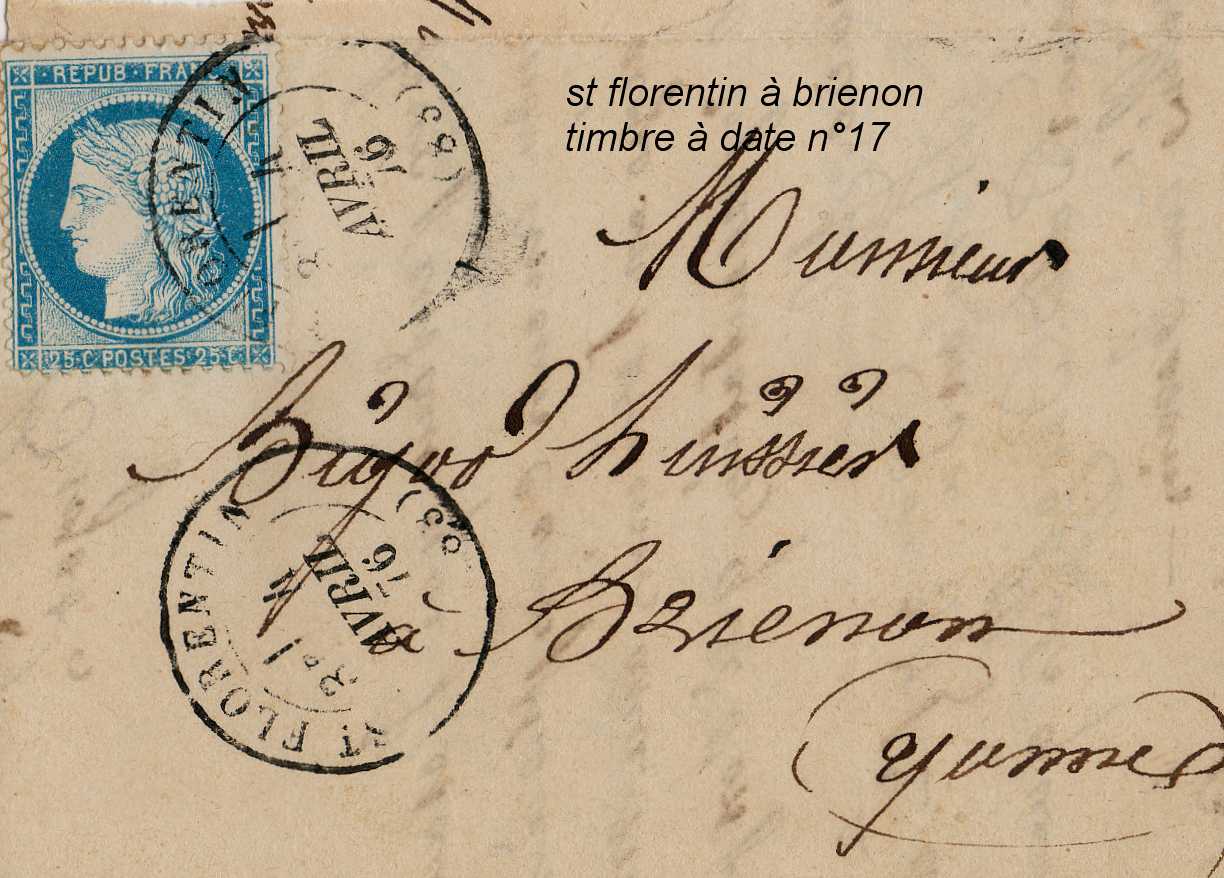 REPUB·FRANC
25·C POSTES 25·C
ORENTIN
AVRIL
76
(89)
st florentin à brienon
timbre à date n°17
Monsieur
huissier
à Brienon
Yonne
ST FLORENTIN
2e /
4
AVRIL
76
(89)